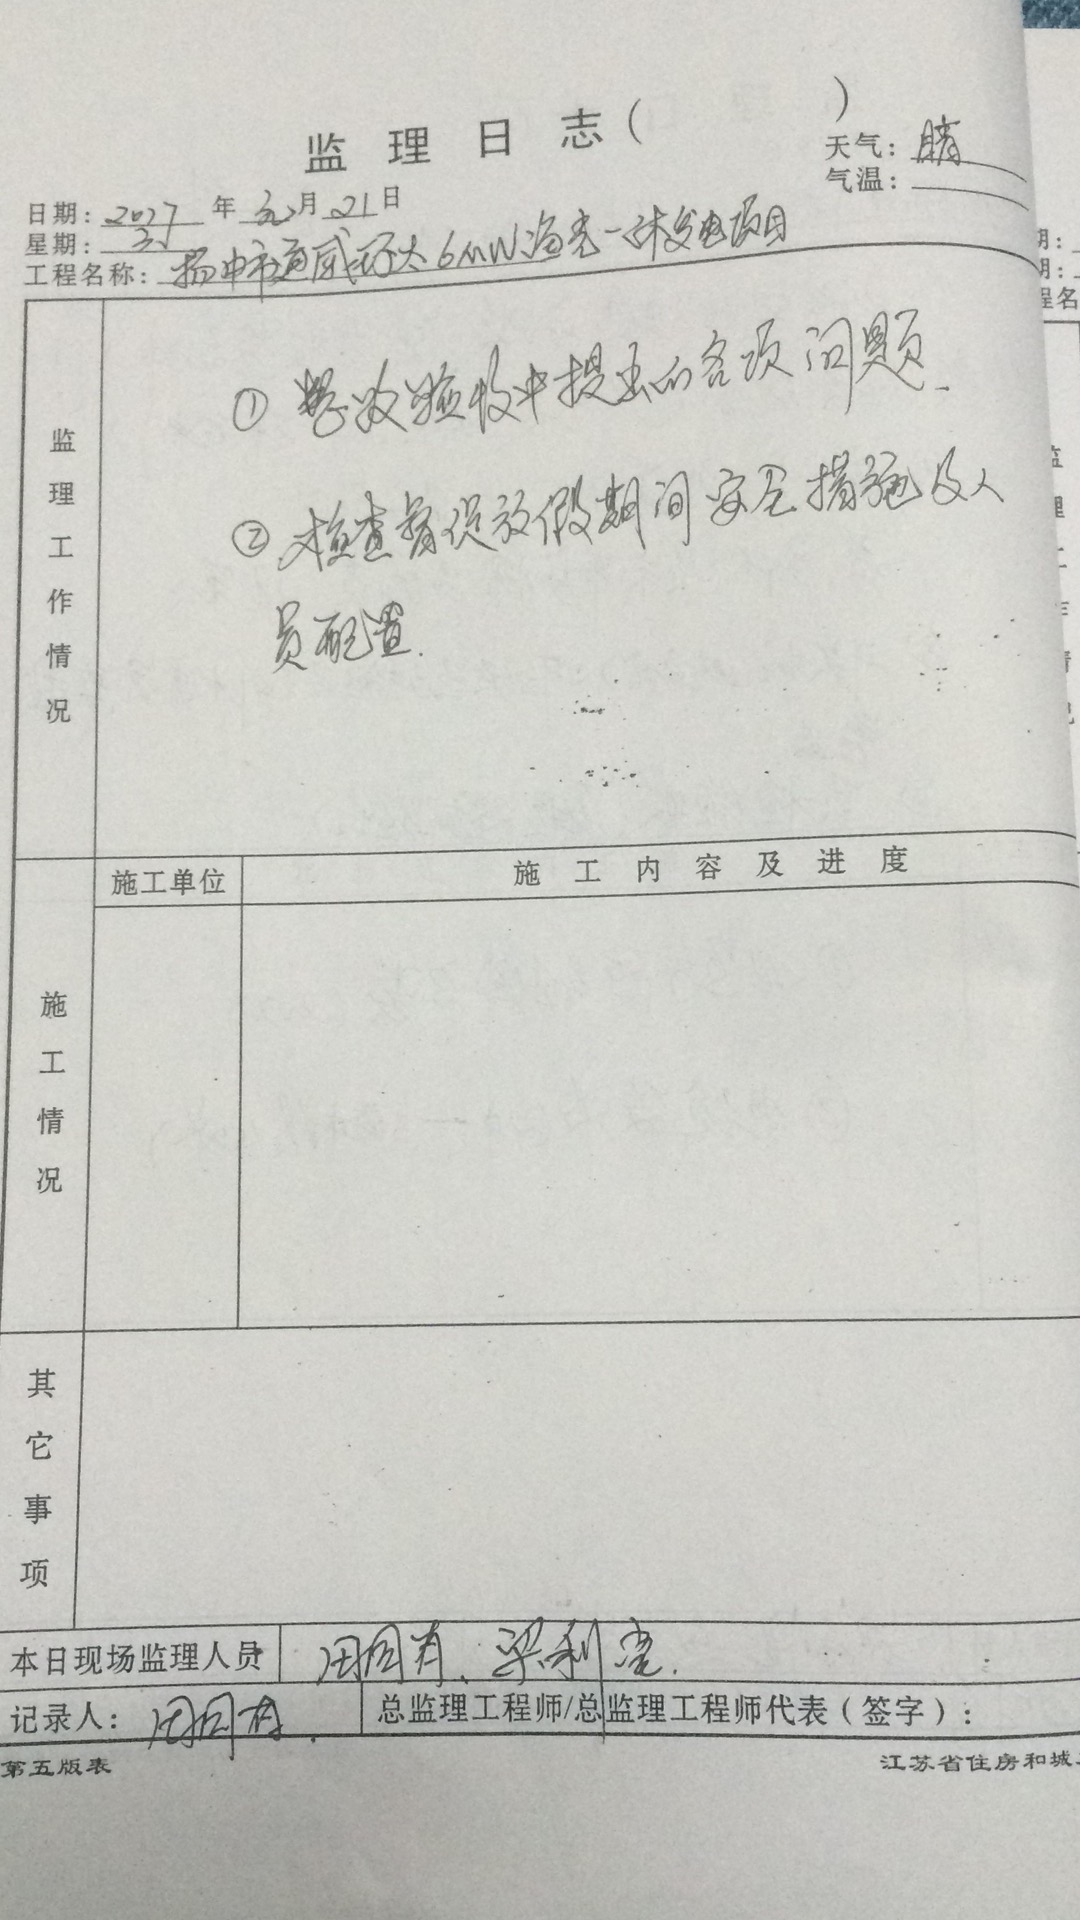 监理日志(            )
天气：晴
气温：
日期：2017年元月21日
星期：
工程名称：扬中市通威 6MW渔光一体发电项目
监理工作情况
① 整改验收中提出的各项问题.
② 检查督促放假期间安全措施及人
员配置.
施工单位
施工内容及进度
施工情况
其它事项
本日现场监理人员
记录人：
总监理工程师/总监理工程师代表（签字）：
第五版表
江苏省住房和城